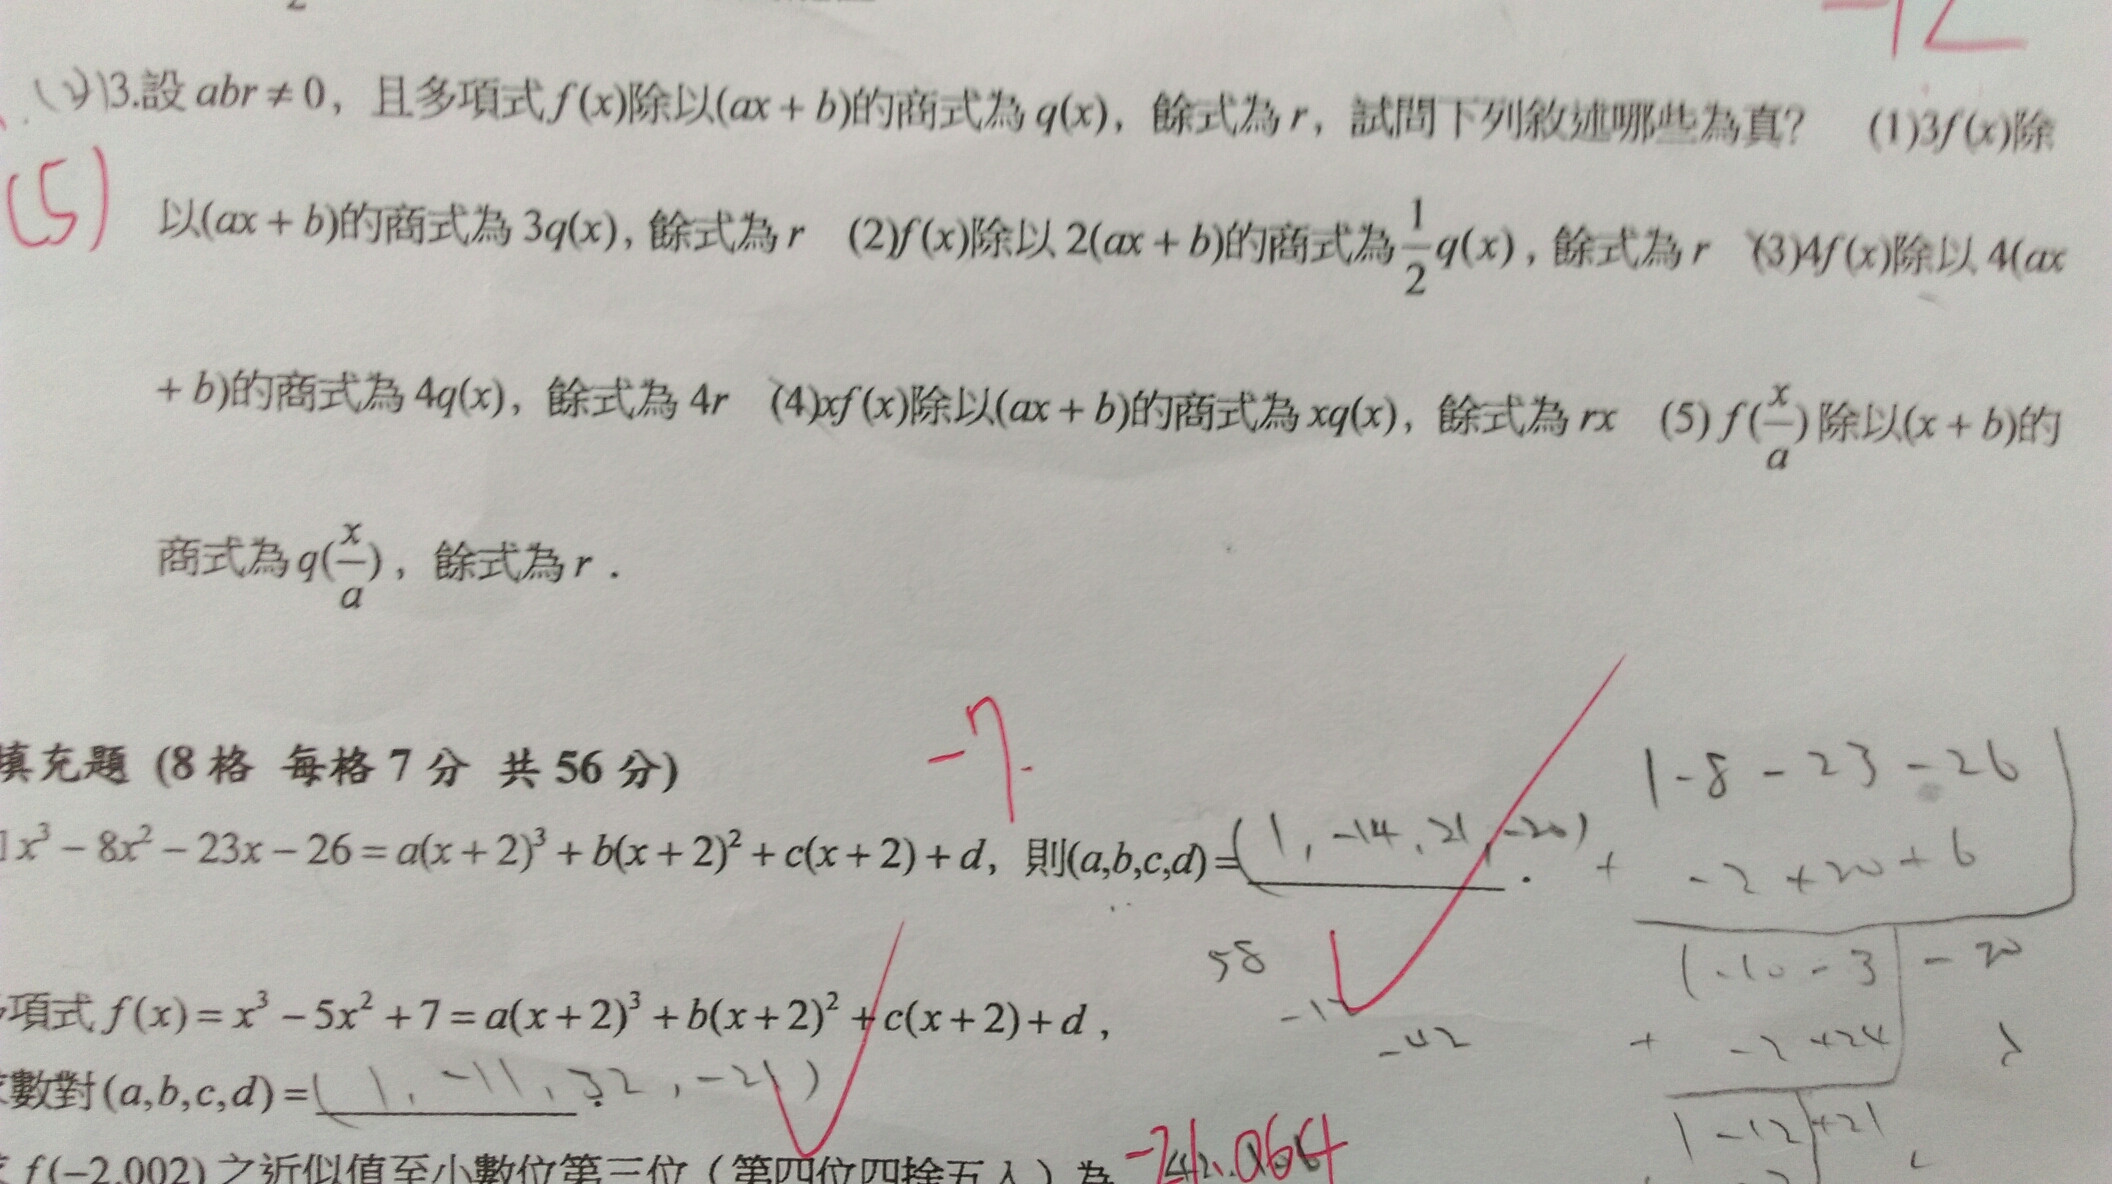 -12
(2)13.設 abr ≠ 0，且多項式 f(x)除以(ax + b)的商式為 q(x)，餘式為 r，試問下列敘述哪些為真？ (1)3f(x)除
(5)
以(ax + b)的商式為 3q(x)，餘式為 r (2)f(x)除以 2(ax + b)的商式為 1/2 q(x)，餘式為 r (3)4f(x)除以 4(ax
+ b)的商式為 4q(x)，餘式為 4r (4)xf(x)除以(ax + b)的商式為 xq(x)，餘式為 rx (5) f(x/a) 除以(x + b)的
商式為 q(x/a)，餘式為 r．
-7.
填充題 (8 格 每格 7 分 共 56 分)
x³ − 8x² − 23x − 26 = a(x + 2)³ + b(x + 2)² + c(x + 2) + d，則(a,b,c,d)=(1, -14, 21, -20)．
1 -8 -23 -26
+ -2 +20 +6
1 -10 -3 -20
+ -2 +24
1 -12 +21
58
-42
項式 f(x) = x³ − 5x² + 7 = a(x + 2)³ + b(x + 2)² + c(x + 2) + d，
數對(a,b,c,d) = (1, -11, 32, -21)
f(−2.002) 之近似值至小數位第三位（第四位四捨五入）為